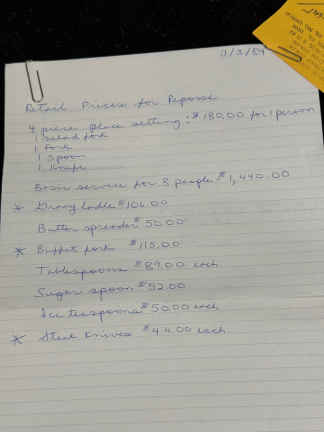 11/3/84
Retail Prices for Repoussé
4 piece place setting: $180.00 for 1 person
1 salad fork
1 fork
1 spoon
1 knife
Basic service for 8 people $1,440.00
* Gravy ladle $106.00
Butter spreader $50.00
* Buffet fork $115.00
Tablespoons $89.00 each
Sugar spoon $52.00
Ice teaspoons $50.00 each
* Steak Knives $44.00 each